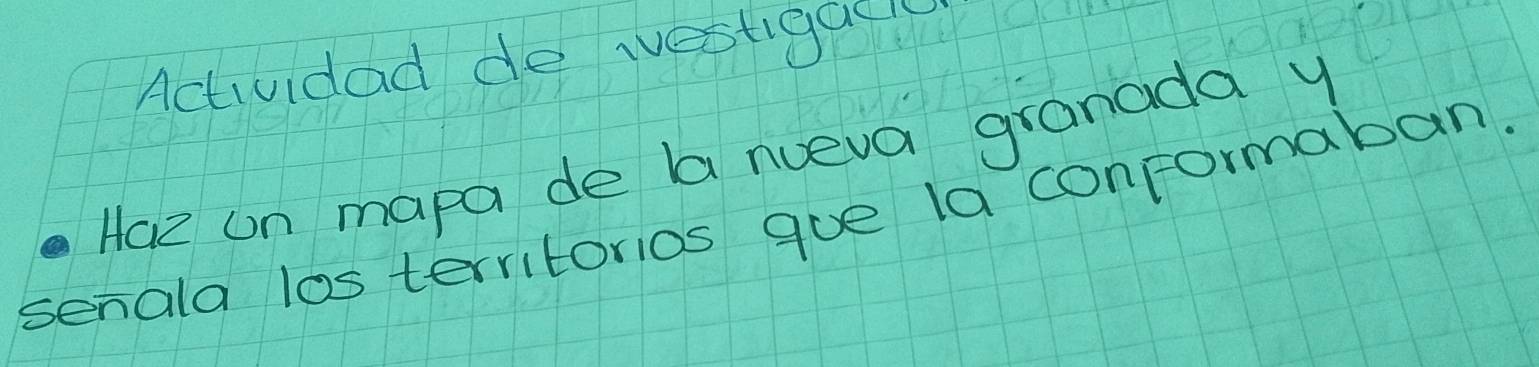 Actividad de
• Haz un mapa de la nueva granada y
señala los territorios que la conformaban.